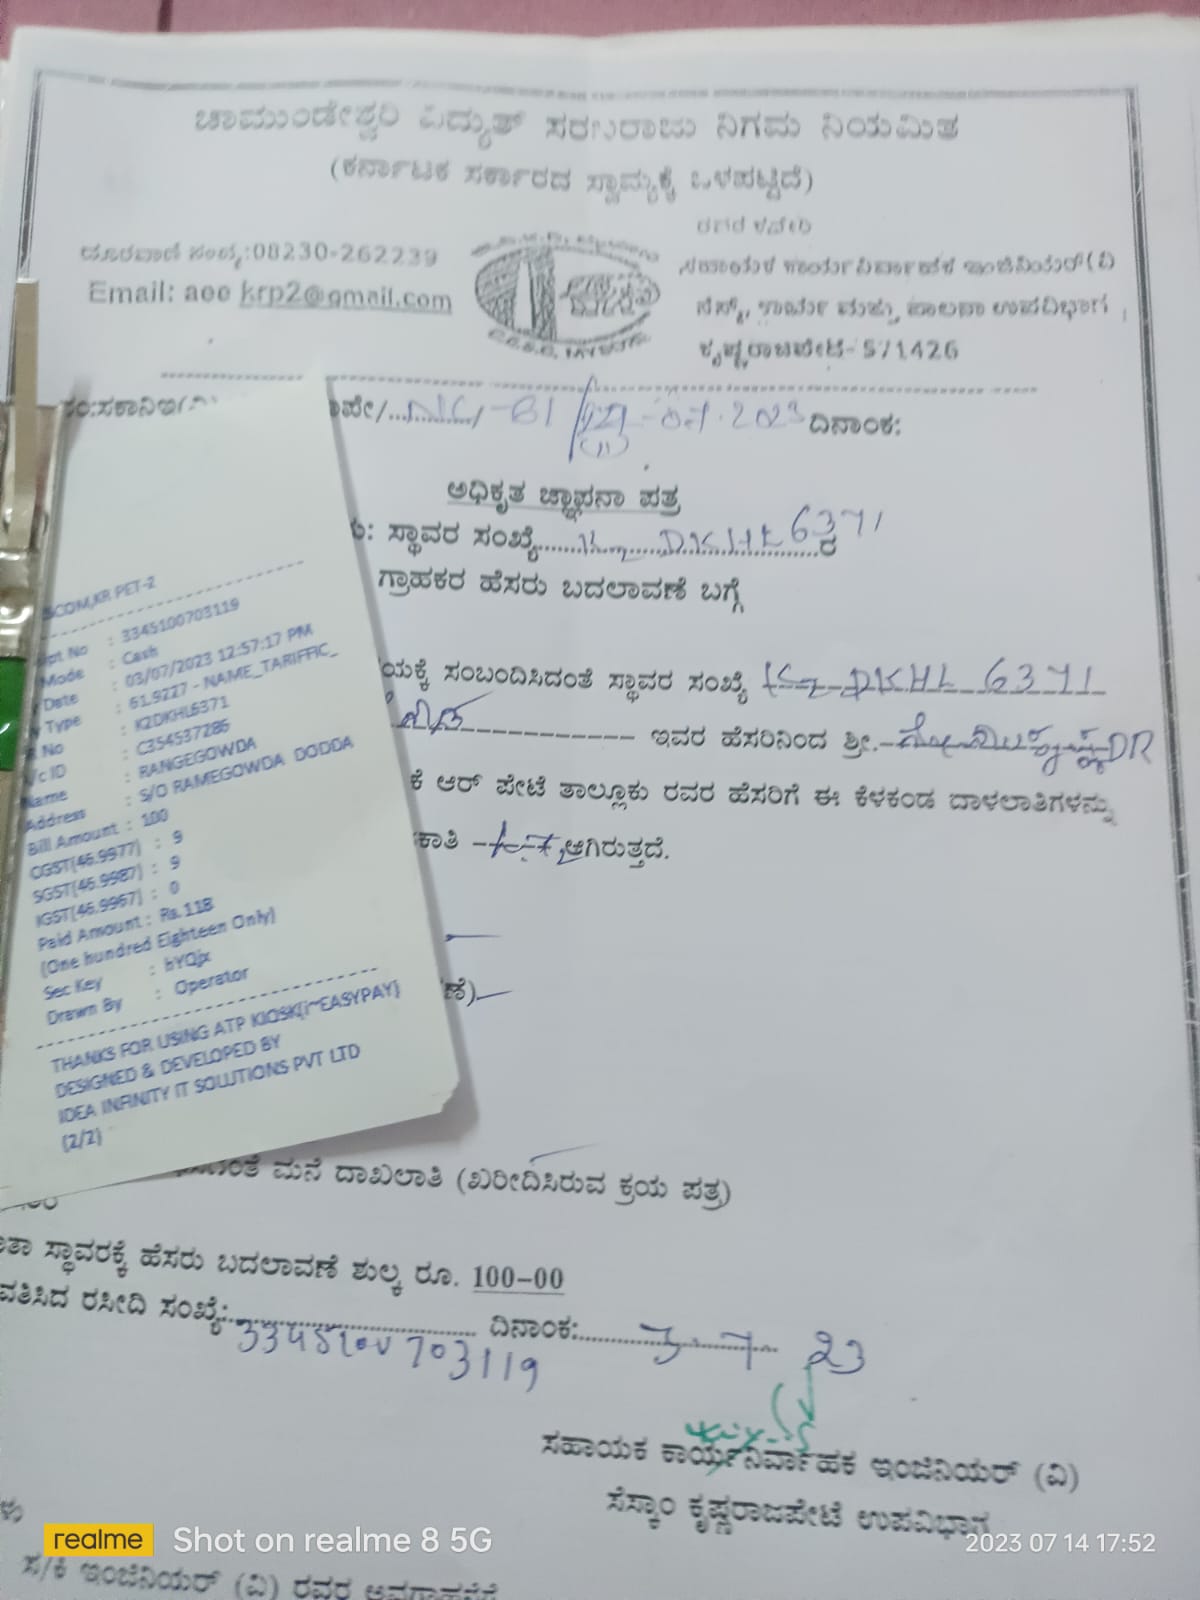 ಚಾಮುಂಡೇಶ್ವರಿ ವಿದ್ಯುತ್ ಸರಬರಾಜು ನಿಗಮ ನಿಯಮಿತ
(ಕರ್ನಾಟಕ ಸರ್ಕಾರದ ಸ್ವಾಮ್ಯಕ್ಕೆ ಒಳಪಟ್ಟಿದೆ)
ದೂರವಾಣಿ ಸಂಖ್ಯೆ:08230-262239
Email: aee krp2@gmail.com
ಸಹಾಯಕ ಕಾರ್ಯನಿರ್ವಾಹಕ ಇಂಜಿನಿಯರ್(ವಿ
ಕಾರ್ಯ ಮತ್ತು ಪಾಲನಾ ಉಪವಿಭಾಗ
ಕೃಷ್ಣರಾಜಪೇಟೆ-571426
07.2023 ದಿನಾಂಕ:
ಅಧಿಕೃತ ಜ್ಞಾಪನಾ ಪತ್ರ
ಸ್ಥಾವರ ಸಂಖ್ಯೆ DKHL 6371 ರ
ಗ್ರಾಹಕರ ಹೆಸರು ಬದಲಾವಣೆ ಬಗ್ಗೆ
ಸಂಬಂದಿಸಿದಂತೆ ಸ್ಥಾವರ ಸಂಖ್ಯೆ K2 DKHL 6371
ಇವರ ಹೆಸರಿನಿಂದ ಶ್ರೀ. DR
ಕೆ ಆರ್ ಪೇಟೆ ತಾಲ್ಲೂಕು ರವರ ಹೆಸರಿಗೆ ಈ ಕೆಳಕಂಡ ದಾಳಲಾತಿಗಳನ್ನು
ಆಗಿರುತ್ತದೆ.
SCOM,KR PET-2
ipt No : 3345100703119
Mode : Cash
Date : 03/07/2023 12:57:17 PM
Type : 61.9227 - NAME_TARIFFIC_
No : K2DKHL6371
/c ID : C354537286
Name : RANGEGOWDA
Address : S/O RAMEGOWDA DODDA
Bill Amount : 100
CGST(46.9977) : 9
SGST(46.9987) : 9
IGST(46.9967) : 0
Paid Amount : Rs.118
(One hundred Eighteen Only)
Sec Key : hYQjx
Drawn By : Operator
THANKS FOR USING ATP KIOSK(i~EASYPAY)
DESIGNED & DEVELOPED BY
IDEA INFINITY IT SOLUTIONS PVT LTD
(2/2)
ಮನೆ ದಾಖಲಾತಿ (ಖರೀದಿಸಿರುವ ಕ್ರಯ ಪತ್ರ)
ಸ್ಥಾವರಕ್ಕೆ ಹೆಸರು ಬದಲಾವಣೆ ಶುಲ್ಕ ರೂ. 100-00
ರಸೀದಿ ಸಂಖ್ಯೆ: 3345100703119 ದಿನಾಂಕ: 3-7-23
ಸಹಾಯಕ ಕಾರ್ಯನಿರ್ವಾಹಕ ಇಂಜಿನಿಯರ್ (ವಿ)
ಸೆಸ್ಕಾಂ ಕೃಷ್ಣರಾಜಪೇಟೆ ಉಪವಿಭಾಗ
ಸ/ಕಿ ಇಂಜಿನಿಯರ್ (ವಿ) ರವರ ಅವಗಾಹನೆಗೆ
realme Shot on realme 8 5G
2023 07 14 17:52